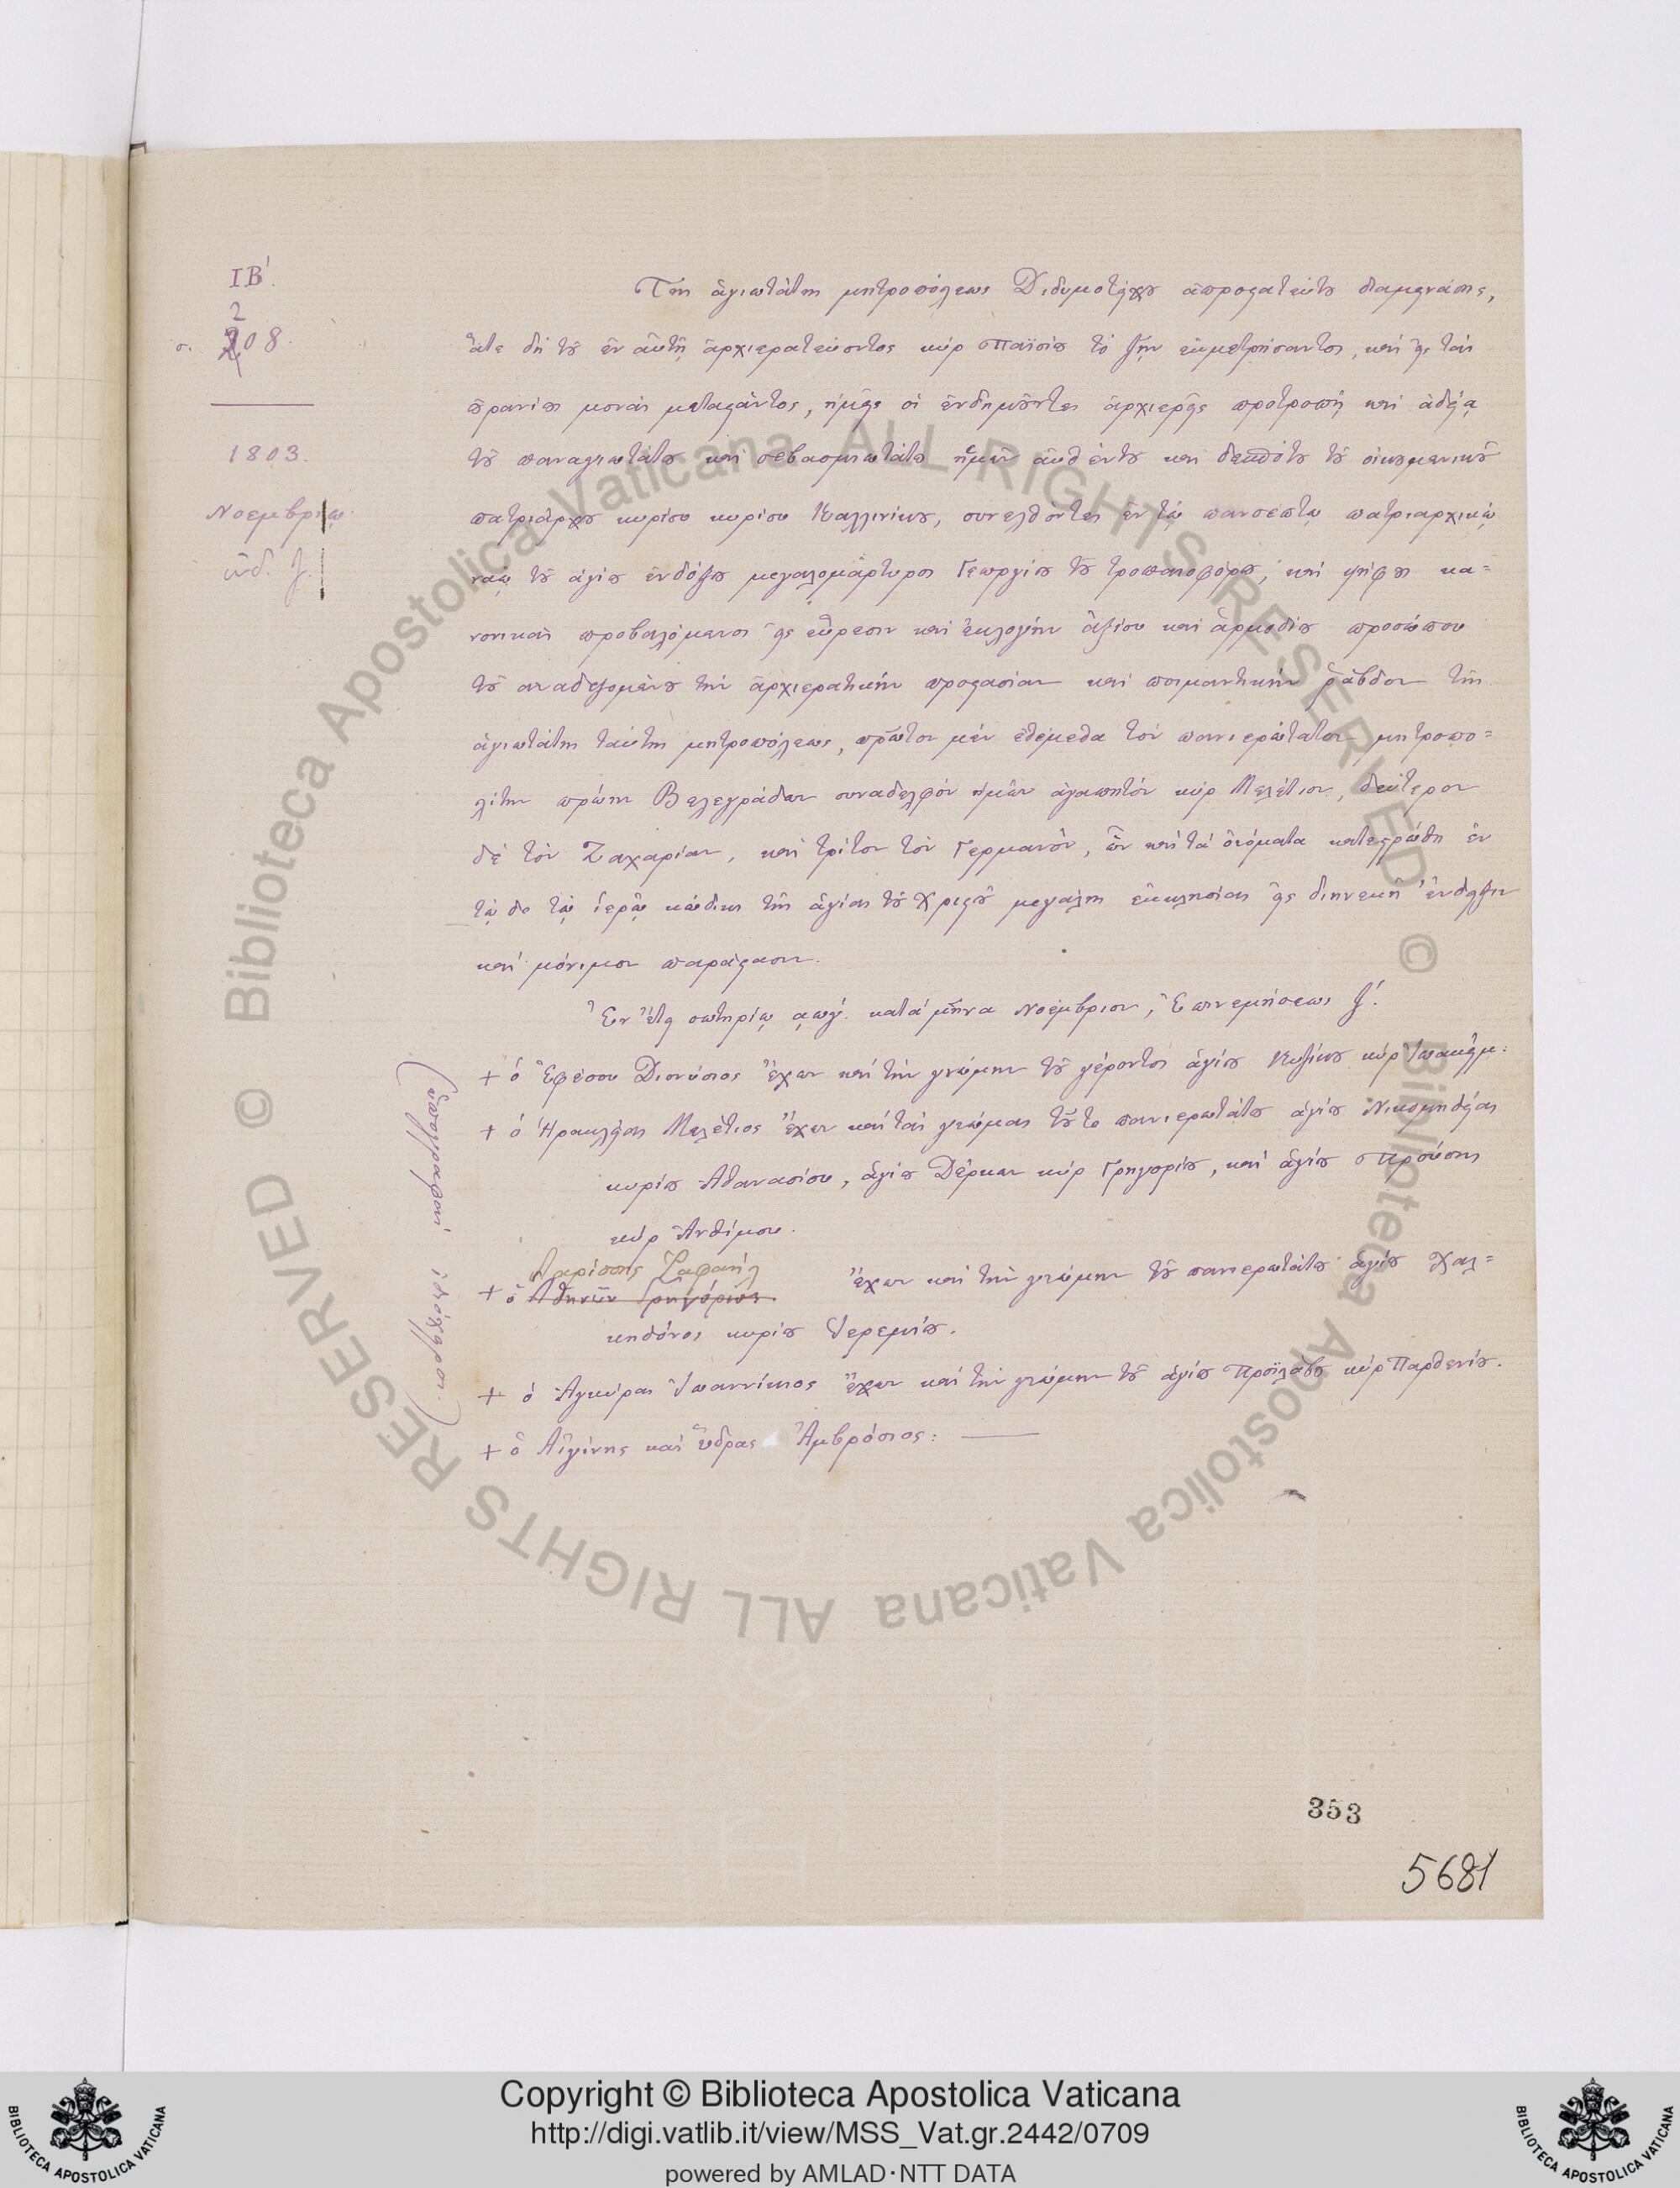 ΙΒ΄.
σ. 208.
1803.
Νοεμβρίῳ.
ἰνδ. ζ.
Τῆς ἁγιωτάτης μητροπόλεως Διδυμοτείχου ἀπροστατεύτου διαμεινάσης,
ἅτε δὴ τοῦ ἐν αὐτῇ ἀρχιερατεύοντος κὺρ Παϊσίου τὸ ζῆν ἐκμετρήσαντος, καὶ εἰς τὰς
οὐρανίους μονὰς μεταστάντος, ἡμεῖς οἱ ἐνδημοῦντες ἀρχιερεῖς προτροπῇ καὶ ἀδείᾳ
τοῦ παναγιωτάτου καὶ σεβασμιωτάτου ἡμῶν αὐθέντου καὶ δεσπότου τοῦ οἰκουμενικοῦ
πατριάρχου κυρίου κυρίου Καλλινίκου, συνελθόντες ἐν τῷ πανσέπτῳ πατριαρχικῷ
ναῷ τοῦ ἁγίου ἐνδόξου μεγαλομάρτυρος Γεωργίου τοῦ τροπαιοφόρου, καὶ ψήφους κα=
νονικὰς προβαλόμενοι εἰς εὕρεσιν καὶ ἐκλογὴν ἀξίου καὶ ἁρμοδίου προσώπου
τοῦ ἀναδεξομένου τὴν ἀρχιερατικὴν προστασίαν καὶ ποιμαντικὴν ῥάβδον τῆς
ἁγιωτάτης ταύτης μητροπόλεως, πρῶτον μὲν ἐθέμεθα τὸν πανιερώτατον μητροπο=
λίτην πρώην Βελεγράδων συναδελφὸν ἡμῶν ἀγαπητὸν κὺρ Μελέτιον, δεύτερον
δὲ τὸν Ζαχαρίαν, καὶ τρίτον τὸν Γερμανὸν, ὧν καὶ τὰ ὀνόματα κατεστρώθη ἐν
τῷδε τῷ ἱερῷ κώδικι τῆς ἁγίας τοῦ Χριστοῦ μεγάλης ἐκκλησίας εἰς διηνεκῆ ἔνδειξιν
καὶ μόνιμον παράστασιν.
Ἐν ἔτει σωτηρίῳ αωγ΄. κατὰ μῆνα Νοέμβριον, Ἐπινεμήσεως ζ΄.
(ὑπογραφαὶ ἰδιόχειροι.)
+ ὁ Ἐφέσου Διονύσιος ἔχων καὶ τὴν γνώμην τοῦ γέροντος ἁγίου Κυζίκου κὺρ Ἰωακείμ:
+ ὁ Ἡρακλείας Μελέτιος ἔχων καὶ τὰς γνώμας τοῦ τε πανιερωτάτου ἁγίου Νικομηδείας
κυρίου Ἀθανασίου, ἁγίου Δέρκων κὺρ Γρηγορίου, καὶ ἁγίου Προύσης
κὺρ Ἀνθίμου.
Λαρίσσης Ῥαφαὴλ
+ ὁ Ἀθηνῶν Γρηγόριος ἔχων καὶ τὴν γνώμην τοῦ πανιερωτάτου ἁγίου Χαλ=
κηδόνος κυρίου Ἱερεμίου.
+ ὁ Ἀγκύρας Ἰωαννίκιος ἔχων καὶ τὴν γνώμην τοῦ ἁγίου Προϊλάβου κὺρ Παρθενίου.
+ ὁ Αἰγίνης καὶ Ὕδρας Ἀμβρόσιος:
353
5681
© Biblioteca Apostolica Vaticana ALL RIGHTS RESERVED © Biblioteca Apostolica Vaticana ALL RIGHTS RESERVED
Copyright © Biblioteca Apostolica Vaticana
http://digi.vatlib.it/view/MSS_Vat.gr.2442/0709
powered by AMLAD·NTT DATA
BIBLIOTECA APOSTOLICA VATICANA
BIBLIOTECA APOSTOLICA VATICANA